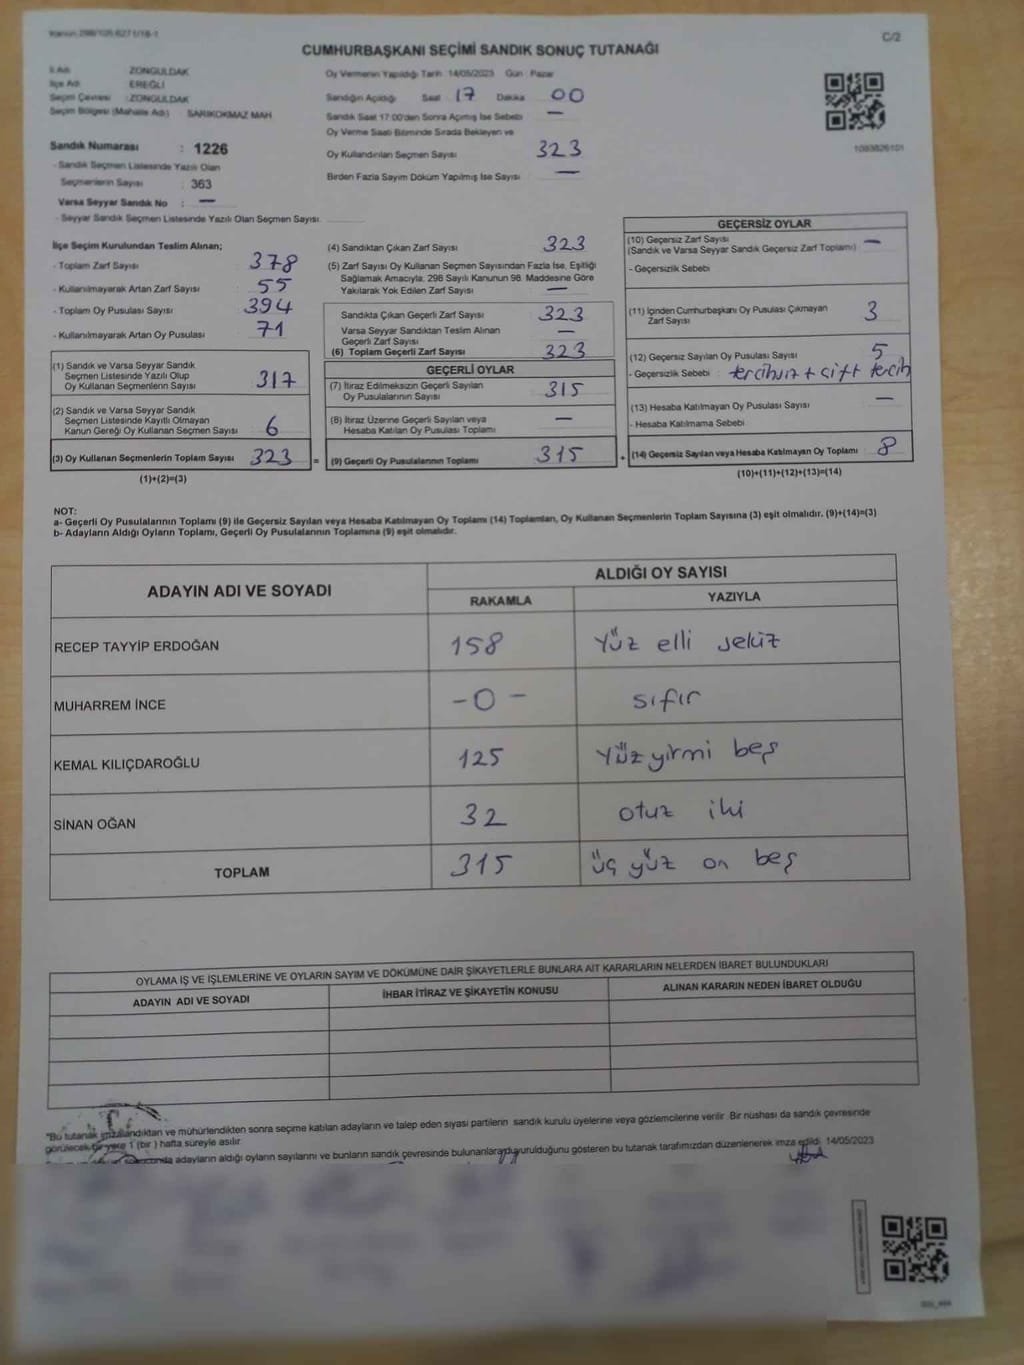 C/2
CUMHURBAŞKANI SEÇİMİ SANDIK SONUÇ TUTANAĞI
İl Adı ZONGULDAK
İlçe Adı EREĞLİ
Seçim Çevresi :ZONGULDAK
Seçim Bölgesi (Mahalle Adı) SARIKOKMAZ MAH
Sandık Numarası : 1226
- Sandık Seçmen Listesinde Yazılı Olan
Seçmenlerin Sayısı : 363
Varsa Seyyar Sandık No : —
- Seyyar Sandık Seçmen Listesinde Yazılı Olan Seçmen Sayısı
Oy Vermenin Yapıldığı Tarih : 14/05/2023 Gün : Pazar
Sandığın Açıldığı Saat 17 Dakika 00
Sandık Saat 17:00'den Sonra Açılmış İse Sebebi —
Oy Verme Saati Bitiminde Sırada Bekleyen ve
Oy Kullandırılan Seçmen Sayısı 323
Birden Fazla Sayım Döküm Yapılmış İse Sayısı —
1093826101
İlçe Seçim Kurulundan Teslim Alınan;
- Toplam Zarf Sayısı 378
- Kullanılmayarak Artan Zarf Sayısı 55
- Toplam Oy Pusulası Sayısı 394
- Kullanılmayarak Artan Oy Pusulası 71
(1) Sandık ve Varsa Seyyar Sandık
Seçmen Listesinde Yazılı Olup
Oy Kullanan Seçmenlerin Sayısı 317
(2) Sandık ve Varsa Seyyar Sandık
Seçmen Listesinde Kayıtlı Olmayan
Kanun Gereği Oy Kullanan Seçmen Sayısı 6
(3) Oy Kullanan Seçmenlerin Toplam Sayısı 323 =
(1)+(2)=(3)
(4) Sandıktan Çıkan Zarf Sayısı 323
(5) Zarf Sayısı Oy Kullanan Seçmen Sayısından Fazla İse, Eşitliği
Sağlamak Amacıyla, 298 Sayılı Kanunun 98. Maddesine Göre
Yakılarak Yok Edilen Zarf Sayısı —
Sandıkta Çıkan Geçerli Zarf Sayısı 323
Varsa Seyyar Sandıktan Teslim Alınan
Geçerli Zarf Sayısı —
(6) Toplam Geçerli Zarf Sayısı 323
GEÇERLİ OYLAR
(7) İtiraz Edilmeksizin Geçerli Sayılan
Oy Pusulalarının Sayısı 315
(8) İtiraz Üzerine Geçerli Sayılan veya
Hesaba Katılan Oy Pusulası Toplamı —
(9) Geçerli Oy Pusulalarının Toplamı 315 +
GEÇERSİZ OYLAR
(10) Geçersiz Zarf Sayısı —
(Sandık ve Varsa Seyyar Sandık Geçersiz Zarf Toplamı)
- Geçersizlik Sebebi
(11) İçinden Cumhurbaşkanı Oy Pusulası Çıkmayan
Zarf Sayısı 3
(12) Geçersiz Sayılan Oy Pusulası Sayısı 5
- Geçersizlik Sebebi : tercihsiz + çift tercih
(13) Hesaba Katılmayan Oy Pusulası Sayısı —
- Hesaba Katılmama Sebebi
(14) Geçersiz Sayılan veya Hesaba Katılmayan Oy Toplamı 8
(10)+(11)+(12)+(13)=(14)
NOT:
a- Geçerli Oy Pusulalarının Toplamı (9) ile Geçersiz Sayılan veya Hesaba Katılmayan Oy Toplamı (14) Toplamları, Oy Kullanan Seçmenlerin Toplam Sayısına (3) eşit olmalıdır. (9)+(14)=(3)
b- Adayların Aldığı Oyların Toplamı, Geçerli Oy Pusulalarının Toplamına (9) eşit olmalıdır.
ADAYIN ADI VE SOYADI ALDIĞI OY SAYISI
RAKAMLA YAZIYLA
RECEP TAYYİP ERDOĞAN 158 Yüz elli sekiz
MUHARREM İNCE -0- sıfır
KEMAL KILIÇDAROĞLU 125 Yüz yirmi beş
SİNAN OĞAN 32 otuz iki
TOPLAM 315 üç yüz on beş
OYLAMA İŞ VE İŞLEMLERİNE VE OYLARIN SAYIM VE DÖKÜMÜNE DAİR ŞİKAYETLERLE BUNLARA AİT KARARLARIN NELERDEN İBARET BULUNDUKLARI
ADAYIN ADI VE SOYADI İHBAR İTİRAZ VE ŞİKAYETİN KONUSU ALINAN KARARIN NEDEN İBARET OLDUĞU
"Bu tutanak imzalandıktan ve mühürlendikten sonra seçime katılan adayların ve talep eden siyasi partilerin sandık kurulu üyelerine veya gözlemcilerine verilir. Bir nüshası da sandık çevresinde
görülecek bir yere 1 (bir) hafta süreyle asılır.
adayların aldığı oyların sayılarını ve bunların sandık çevresinde bulunanlara duyurulduğunu gösteren bu tutanak tarafımızdan düzenlenerek imza edildi. 14/05/2023